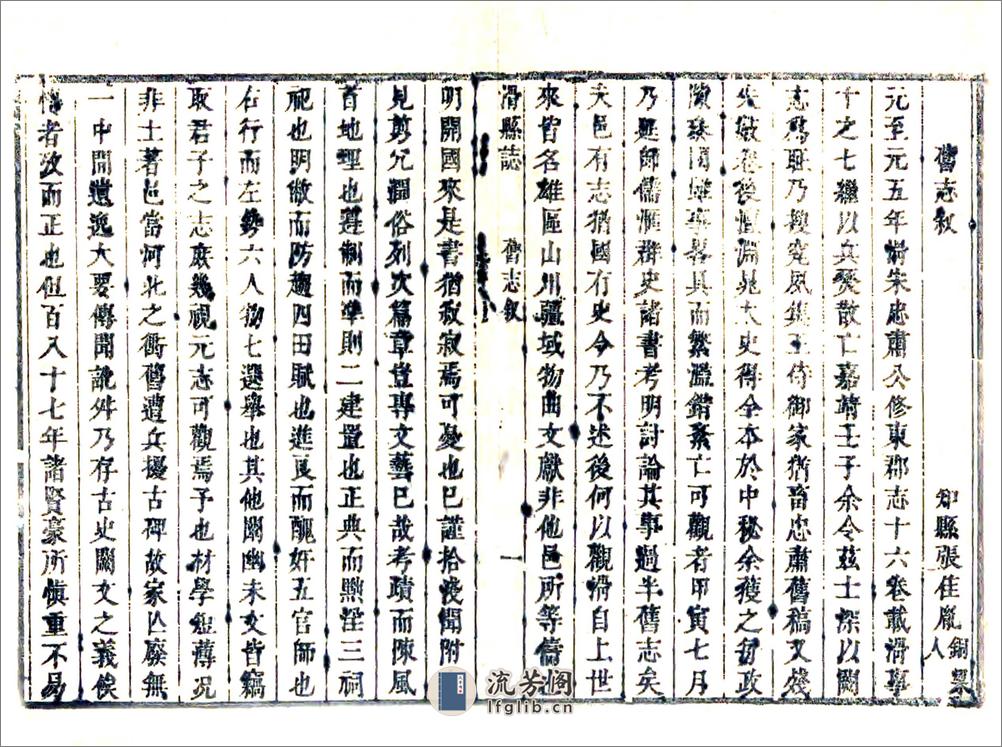 舊志叙
知縣張佳胤銅梁人
元至元五年滑宋忠肅公修東郡志十六卷載滑事
十之七繼以兵燹散亡嘉靖壬子余令茲土深以闕
志為耻乃搜究風集王侍御家猶畜忠肅舊稿又殘
失數卷後澶淵晁太史得全本於中秘余獲之暇政
乃延師儒滙群史諸書考明討論其事過半舊志矣
夫邑有志猶國有史今乃不述後何以觀滑自上世
來皆名雄區山川疆域物曲文獻非他邑所等儔
滑縣誌 舊志叙 一
明開國來是書猶寂寂焉可憂也已謹拾後聞附
見剪冗澗俗列次篇章豈專文藝已哉考蹟而陳風
首地理也遵制而準則二建置也正典而黜淫三祠
祀也明敝而防趨四田賦也進良而醜奸五官師也
右行而左勢六人物七選舉也其他闡幽未文皆竊
取君子之志庶幾視元志可觀焉予也材學短薄况
非土著邑當河北之衝舊遭兵擾古碑故家亾廢無
一中間遺逸大要傳聞訛舛乃存古史闕文之義俟
者改而正也但百八十七年諸賢豪所慎重不易
流芳阁
lfglib.cn